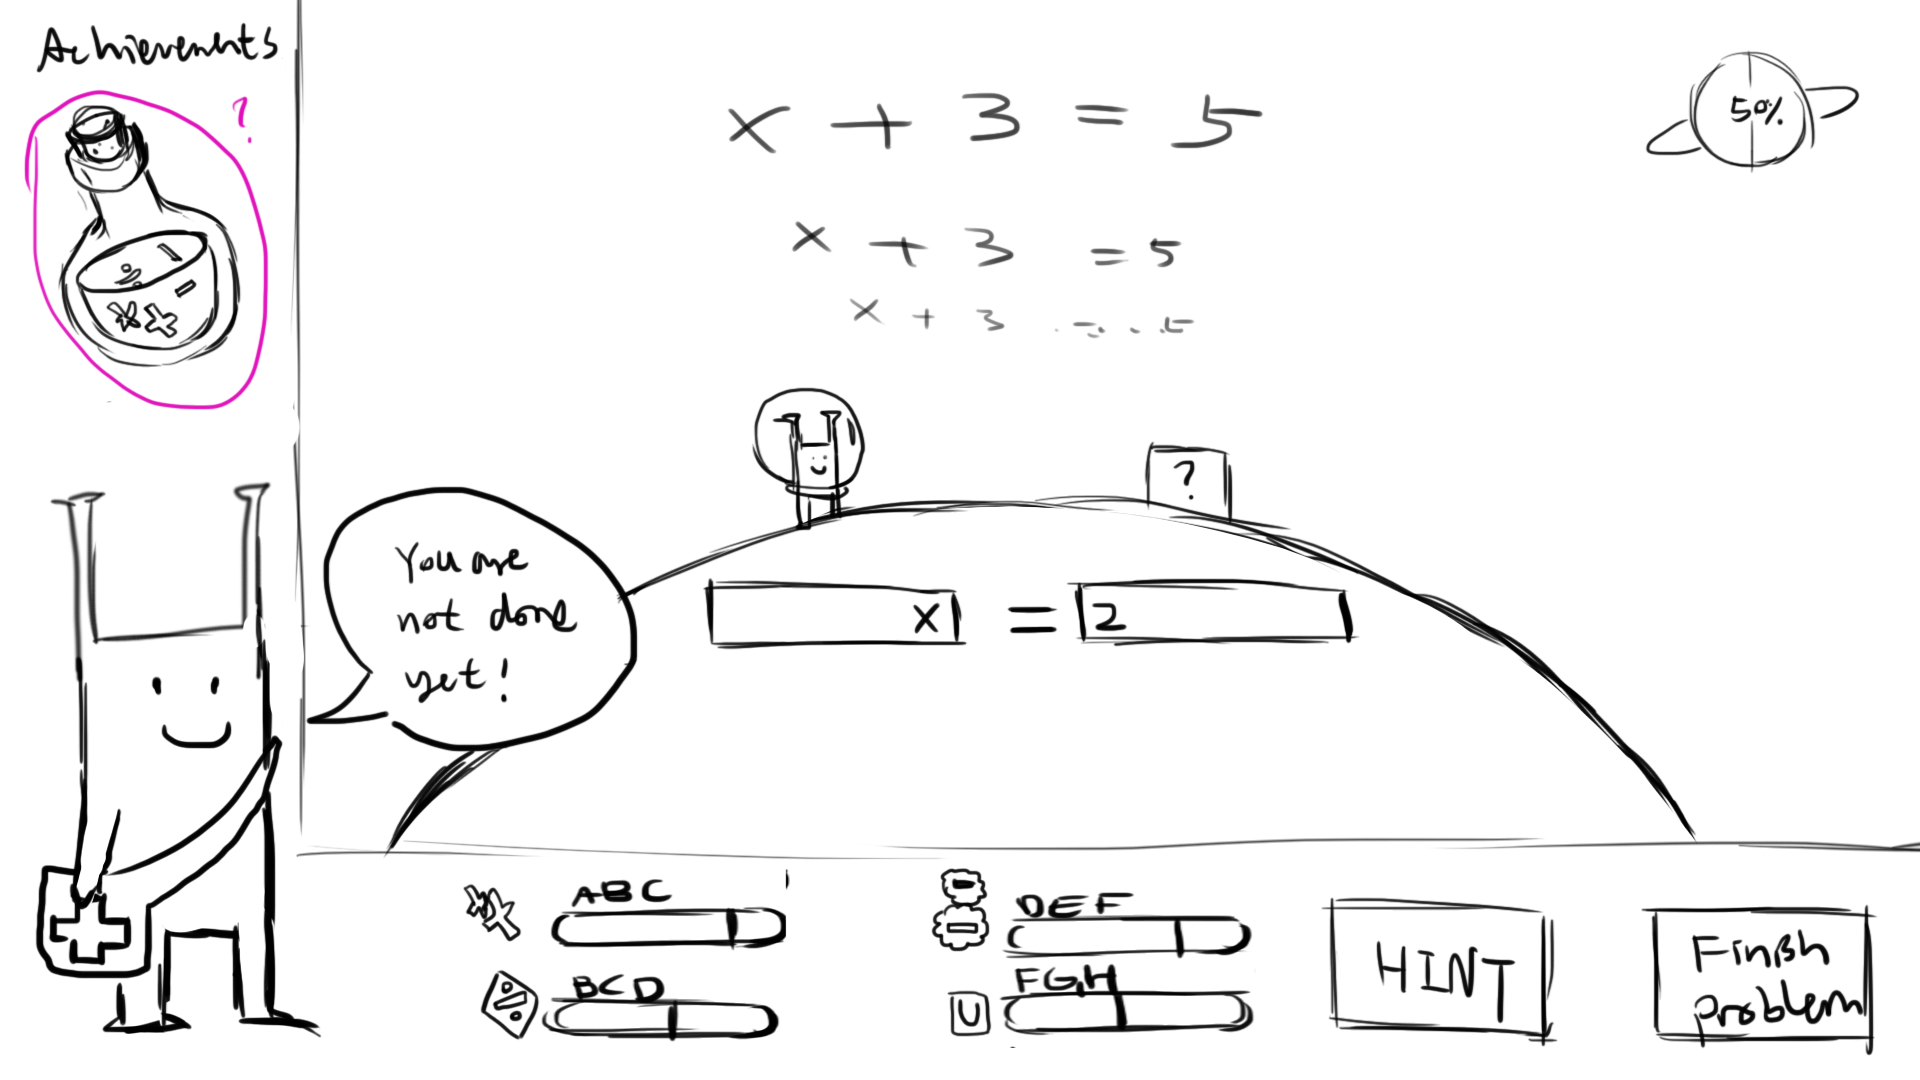 Achievements
?
x + 3 = 5
50%
x + 3 = 5
x + 3 = 5
?
You are
not done
yet!
x = 2
ABC
DEF
BCD
FGH
U
HINT
Finish
problem